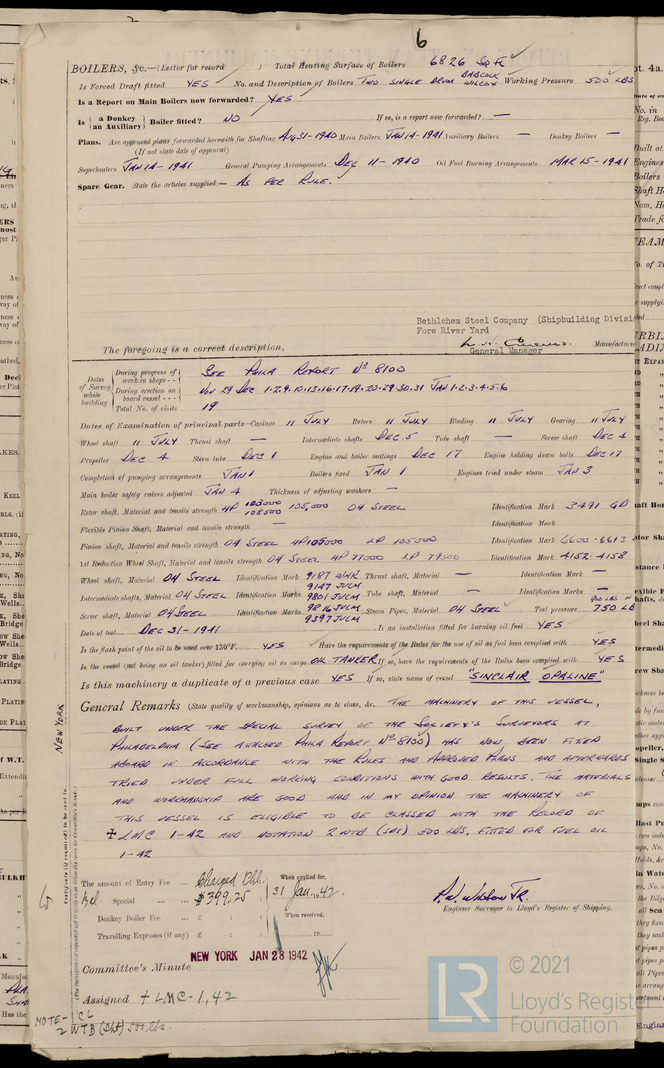 6
BOILERS, &c.—(Letter for record Total Heating Surface of Boilers 6826 Sq Ft
Is Forced Draft fitted YES No. and Description of Boilers TWO SINGLE DRUM BABCOCK WILCOX Working Pressure 500 LBS
Is a Report on Main Boilers now forwarded? YES
Is {a Donkey / an Auxiliary} Boiler fitted? NO If so, is a report now forwarded? —
Plans. Are approved plans forwarded herewith for Shafting Aug 31-1940 Main Boilers JAN 14-1941 Auxiliary Boilers — Donkey Boilers —
(If not state date of approval)
Superheaters JAN 14-1941 General Pumping Arrangements DEC 11-1940 Oil Fuel Burning Arrangements MAR 15-1941
Spare Gear. State the articles supplied— AS PER RULE.
Bethlehem Steel Company (Shipbuilding Divisi
Fore River Yard
The foregoing is a correct description, Manufacture
General Manager
Dates of Survey while building
During progress of work in shops -- SEE PHILA REPORT Nº 8100
During erection on board vessel --- NOV 29 DEC 1-2-9-10-13-16-17-19-20-29-30-31 JAN 1-2-3-4-5-6
Total No. of visits 19
Dates of Examination of principal parts—Casings 11 JULY Rotors 11 JULY Blading 11 JULY Gearing 11 JULY
Wheel shaft 11 JULY Thrust shaft — Intermediate shafts DEC 5 Tube shaft — Screw shaft DEC 4
Propeller DEC 4 Stern tube DEC 1 Engine and boiler seatings DEC 17 Engine holding down bolts DEC 17
Completion of pumping arrangements JAN 1 Boilers fixed JAN 1 Engines tried under steam JAN 3
Main boiler safety valves adjusted JAN 4 Thickness of adjusting washers —
Rotor shaft, Material and tensile strength HP 103000 108500 105,000 OH STEEL Identification Mark 3491 GD
Flexible Pinion Shaft, Material and tensile strength — Identification Mark
Pinion shaft, Material and tensile strength OH STEEL HP 105000 LP 105000 Identification Mark 6600-6613
1st Reduction Wheel Shaft, Material and tensile strength OH STEEL HP 77000 LP 79500 Identification Mark 4152-4158
Wheel shaft, Material OH STEEL Identification Mark 9187 WHK 9147 JVCM Thrust shaft, Material — Identification Mark —
Intermediate shafts, Material OH STEEL Identification Marks 9801 JVCM Tube shaft, Material — Identification Mark —
Screw shaft, Material OH STEEL Identification Marks 9816 JVCM 9397 JVCM Steam Pipes, Material OH STEEL Test pressure 750 LB
Date of test DEC-31-1941 Is an installation fitted for burning oil fuel YES
Is the flash point of the oil to be used over 150°F. YES Have the requirements of the Rules for the use of oil as fuel been complied with YES
Is the vessel (not being an oil tanker) fitted for carrying oil as cargo OIL TANKER If so, have the requirements of the Rules been complied with YES
Is this machinery a duplicate of a previous case YES If so, state name of vessel "SINCLAIR OPALINE"
General Remarks (State quality of workmanship, opinions as to class, &c. THE MACHINERY OF THIS VESSEL,
BUILT UNDER THE SPECIAL SURVEY OF THE SOCIETY'S SURVEYORS AT
PHILADELPHIA (SEE ATTACHED PHILA REPORT Nº 8100) HAS NOW BEEN FITTED
ABOARD IN ACCORDANCE WITH THE RULES AND APPROVED PLANS AND AFTERWARDS
TRIED UNDER FULL WORKING CONDITIONS WITH GOOD RESULTS. THE MATERIALS
AND WORKMANSHIP ARE GOOD AND IN MY OPINION THE MACHINERY OF
THIS VESSEL IS ELIGIBLE TO BE CLASSED WITH THE RECORD OF
✠ LMC 1-42 AND NOTATION 2 WTB (SPT) 500 LBS. FITTED FOR FUEL OIL
1-42
NEW YORK
The amount of Entry Fee ... Charged Phl. When applied for,
Special ... $399.25 31 Jan. 1942.
Donkey Boiler Fee ... £ : : When received,
Travelling Expenses (if any) £ : : 19
Engineer Surveyor to Lloyd's Register of Shipping.
Committee's Minute NEW YORK JAN 28 1942
Assigned + LMC-1,42
NOTE-1CL
2 WTB (Spt) 500 lbs.
LR
© 2021
Lloyd's Register
Foundation